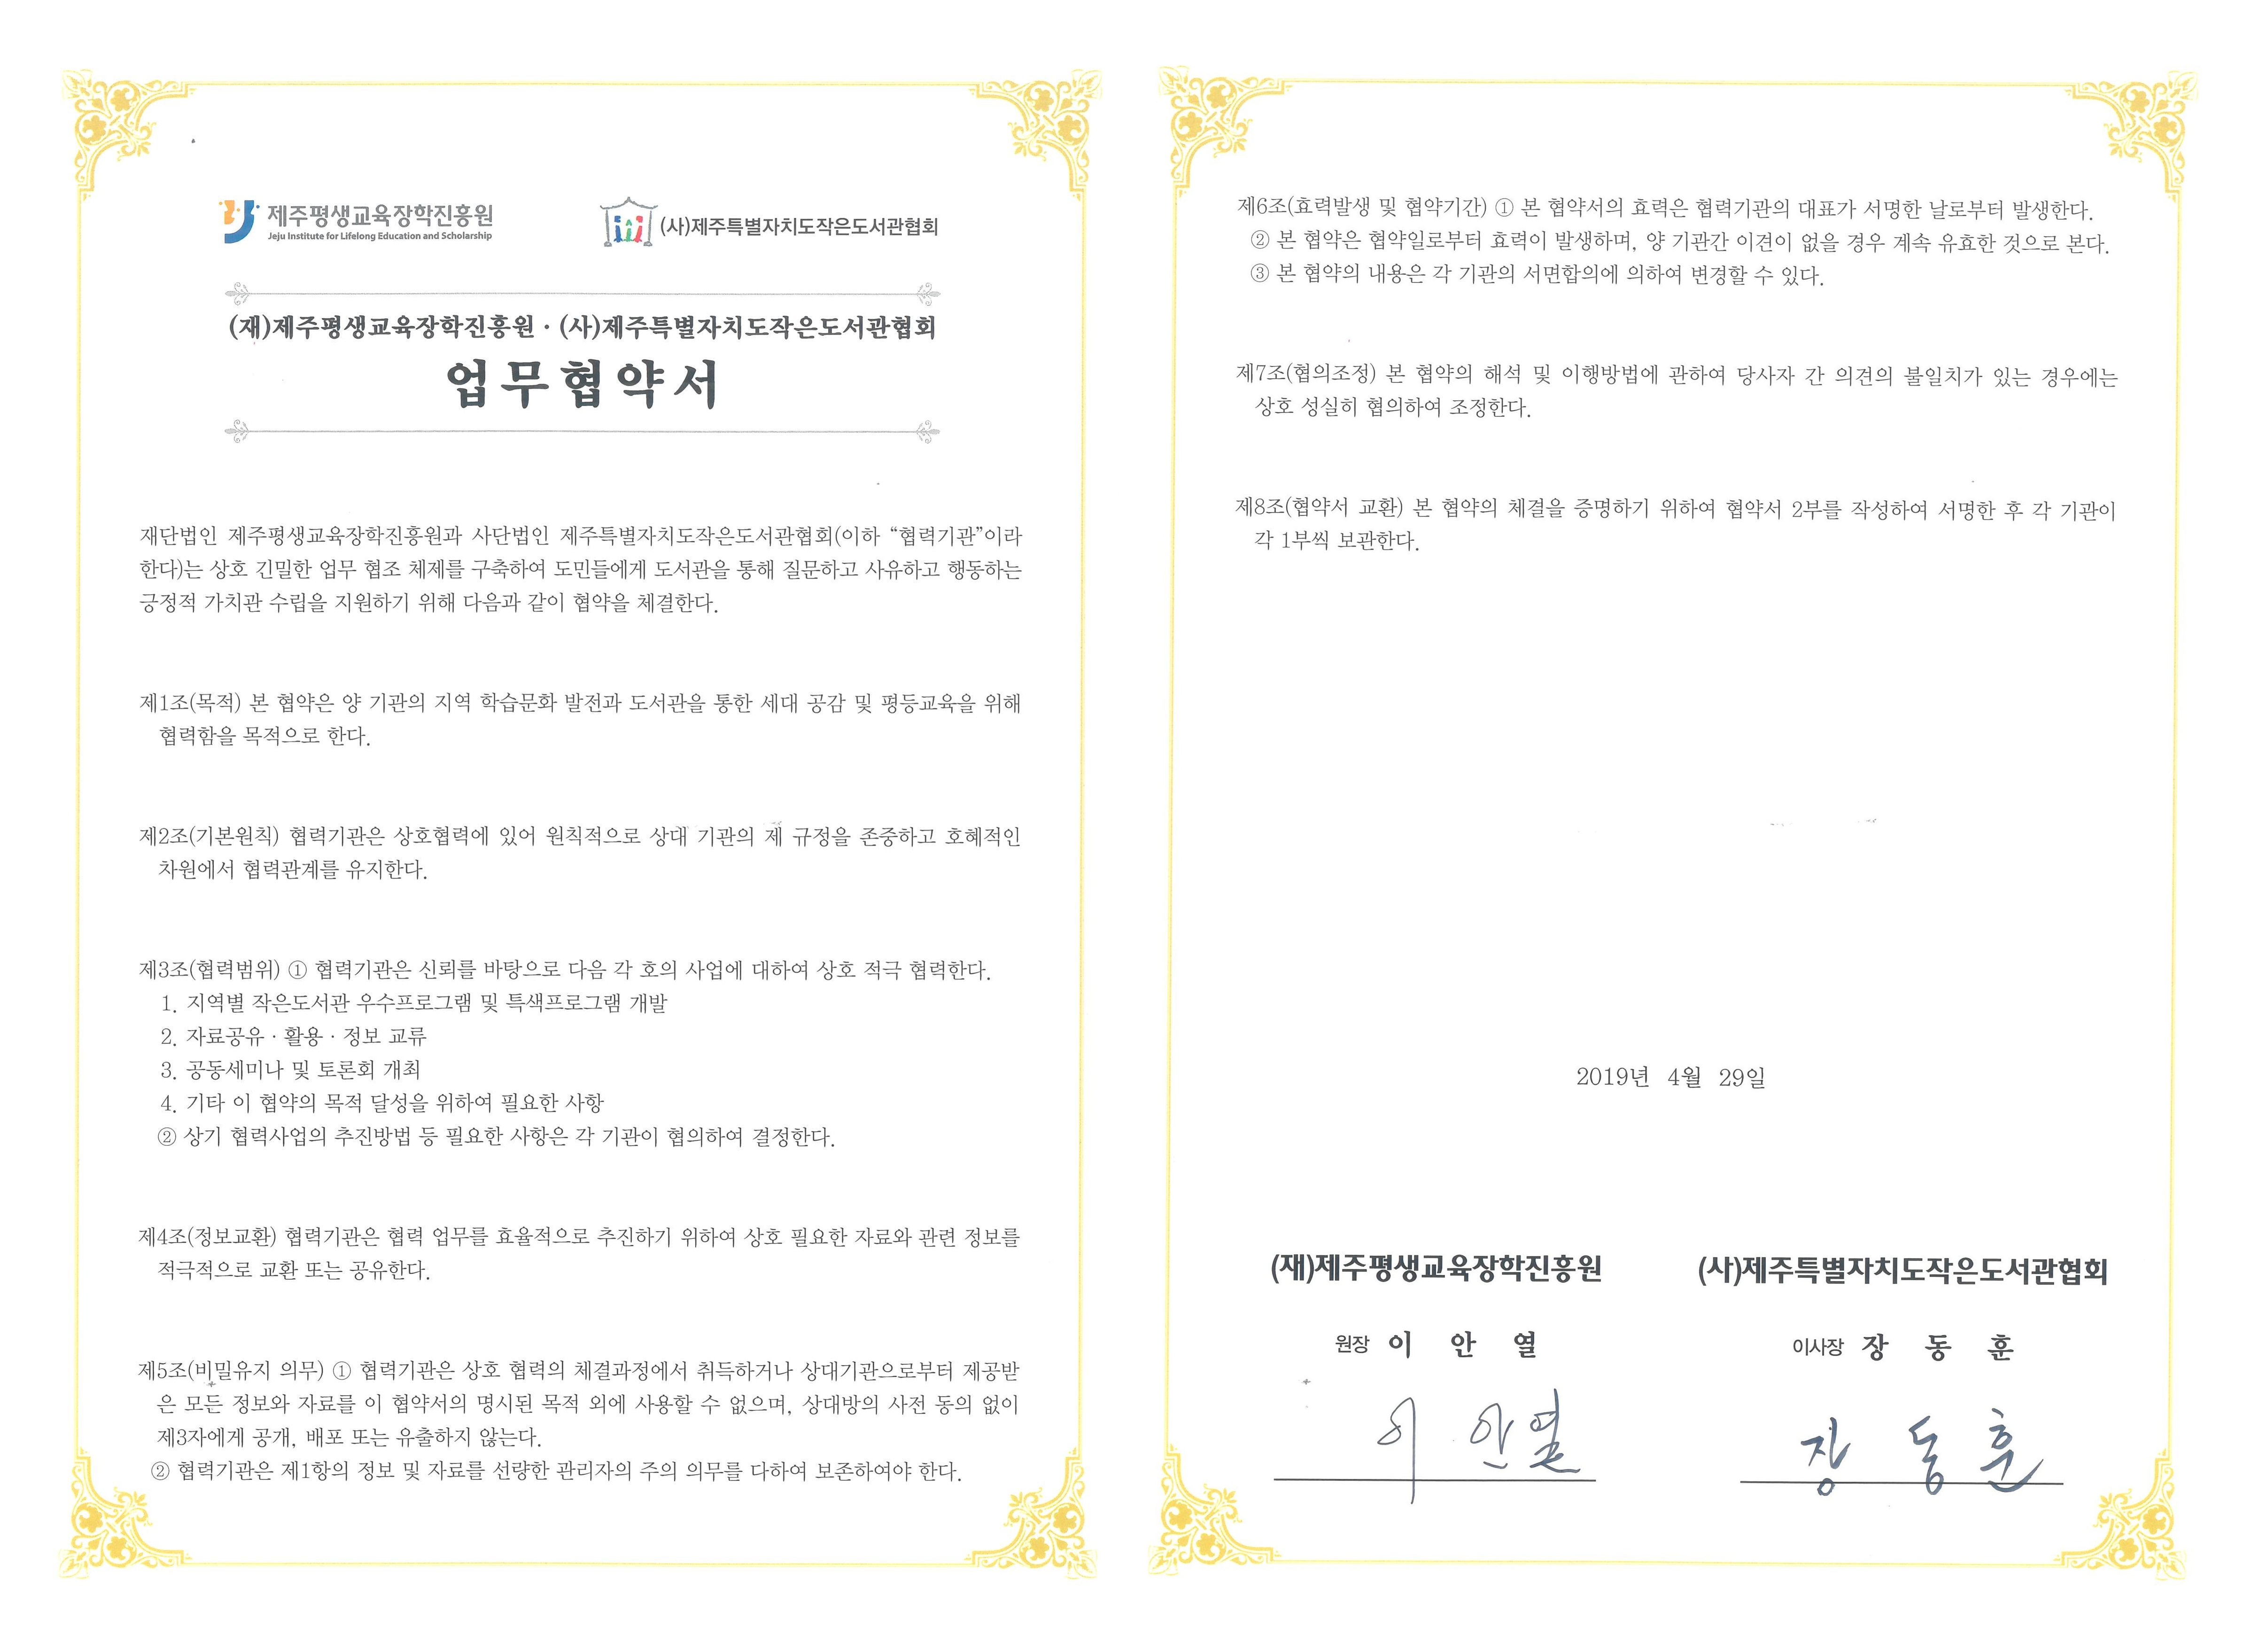 제주평생교육장학진흥원
Jeju Institute for Lifelong Education and Scholarship
(사)제주특별자치도작은도서관협회
(재)제주평생교육장학진흥원 · (사)제주특별자치도작은도서관협회
업무협약서
재단법인 제주평생교육장학진흥원과 사단법인 제주특별자치도작은도서관협회(이하 “협력기관”이라
한다)는 상호 긴밀한 업무 협조 체제를 구축하여 도민들에게 도서관을 통해 질문하고 사유하고 행동하는
긍정적 가치관 수립을 지원하기 위해 다음과 같이 협약을 체결한다.
제1조(목적) 본 협약은 양 기관의 지역 학습문화 발전과 도서관을 통한 세대 공감 및 평등교육을 위해
협력함을 목적으로 한다.
제2조(기본원칙) 협력기관은 상호협력에 있어 원칙적으로 상대 기관의 제 규정을 존중하고 호혜적인
차원에서 협력관계를 유지한다.
제3조(협력범위) ① 협력기관은 신뢰를 바탕으로 다음 각 호의 사업에 대하여 상호 적극 협력한다.
1. 지역별 작은도서관 우수프로그램 및 특색프로그램 개발
2. 자료공유 · 활용 · 정보 교류
3. 공동세미나 및 토론회 개최
4. 기타 이 협약의 목적 달성을 위하여 필요한 사항
② 상기 협력사업의 추진방법 등 필요한 사항은 각 기관이 협의하여 결정한다.
제4조(정보교환) 협력기관은 협력 업무를 효율적으로 추진하기 위하여 상호 필요한 자료와 관련 정보를
적극적으로 교환 또는 공유한다.
제5조(비밀유지 의무) ① 협력기관은 상호 협력의 체결과정에서 취득하거나 상대기관으로부터 제공받
은 모든 정보와 자료를 이 협약서의 명시된 목적 외에 사용할 수 없으며, 상대방의 사전 동의 없이
제3자에게 공개, 배포 또는 유출하지 않는다.
② 협력기관은 제1항의 정보 및 자료를 선량한 관리자의 주의 의무를 다하여 보존하여야 한다.
제6조(효력발생 및 협약기간) ① 본 협약서의 효력은 협력기관의 대표가 서명한 날로부터 발생한다.
② 본 협약은 협약일로부터 효력이 발생하며, 양 기관간 이견이 없을 경우 계속 유효한 것으로 본다.
③ 본 협약의 내용은 각 기관의 서면합의에 의하여 변경할 수 있다.
제7조(협의조정) 본 협약의 해석 및 이행방법에 관하여 당사자 간 의견의 불일치가 있는 경우에는
상호 성실히 협의하여 조정한다.
제8조(협약서 교환) 본 협약의 체결을 증명하기 위하여 협약서 2부를 작성하여 서명한 후 각 기관이
각 1부씩 보관한다.
2019년 4월 29일
(재)제주평생교육장학진흥원
원장 이 안 열
이 안열
(사)제주특별자치도작은도서관협회
이사장 장 동 훈
장 동 훈